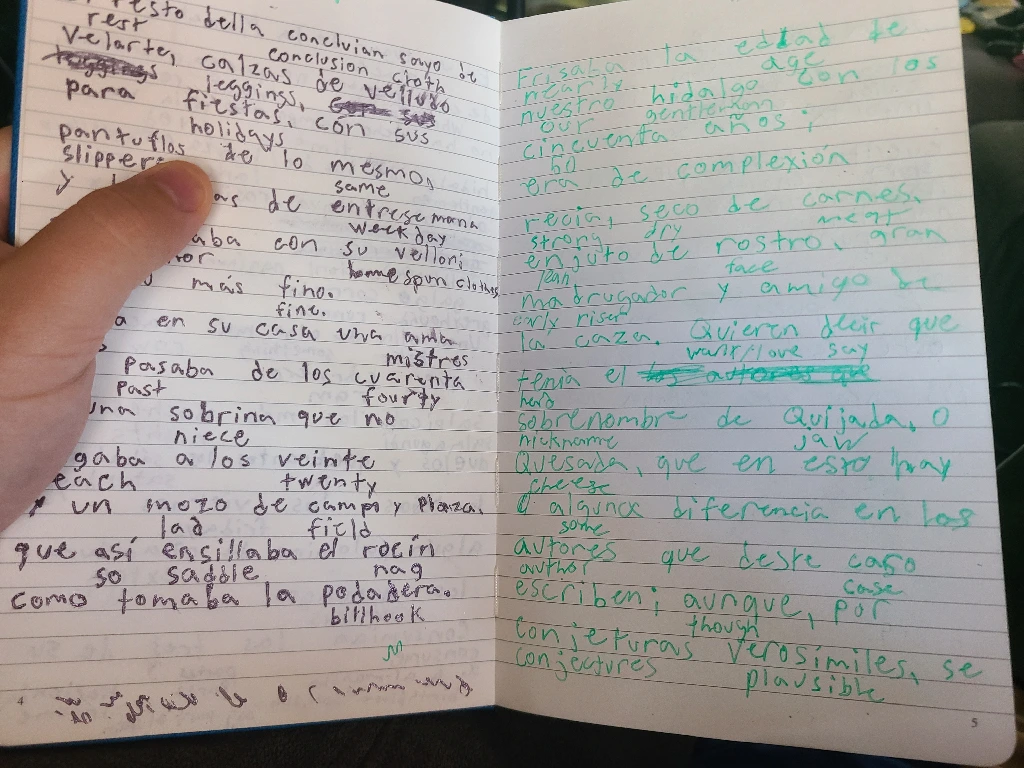 resto della concluian sayo de
rest conclusion cloth
velarte, calzas de velludo
leggings,
para fiestas, con sus
holidays
pantuflos de lo mesmo,
slippers same
y as de entresemana
weekday
aba con su vellori
homespun clothes
más fino.
fine.
a en su casa una ama
mistres
pasaba de los cuarenta
past fourty
una sobrina que no
niece
gaba a los veinte
each twenty
un mozo de campo y plaza.
lad field
que así ensillaba el rocín
so saddle nag
como tomaba la podadera.
billhook
Frisaba la edad de
nearly age
nuestro hidalgo con los
our gentleman
cincuenta años;
50
era de complexión
recia, seco de carnes,
strong dry meat
enjuto de rostro, gran
lean face
madrugador y amigo de
early riser
la caza. Quieren decir que
want/love say
tenia el los autores que
had
sobrenombre de Quijada, o
nickname jaw
Quesada, que en esto hay
cheese
alguna diferencia en los
some
autores que deste caso
author case
escriben; aunque, por
though
conjeturas verosímiles, se
conjectures plausible
5